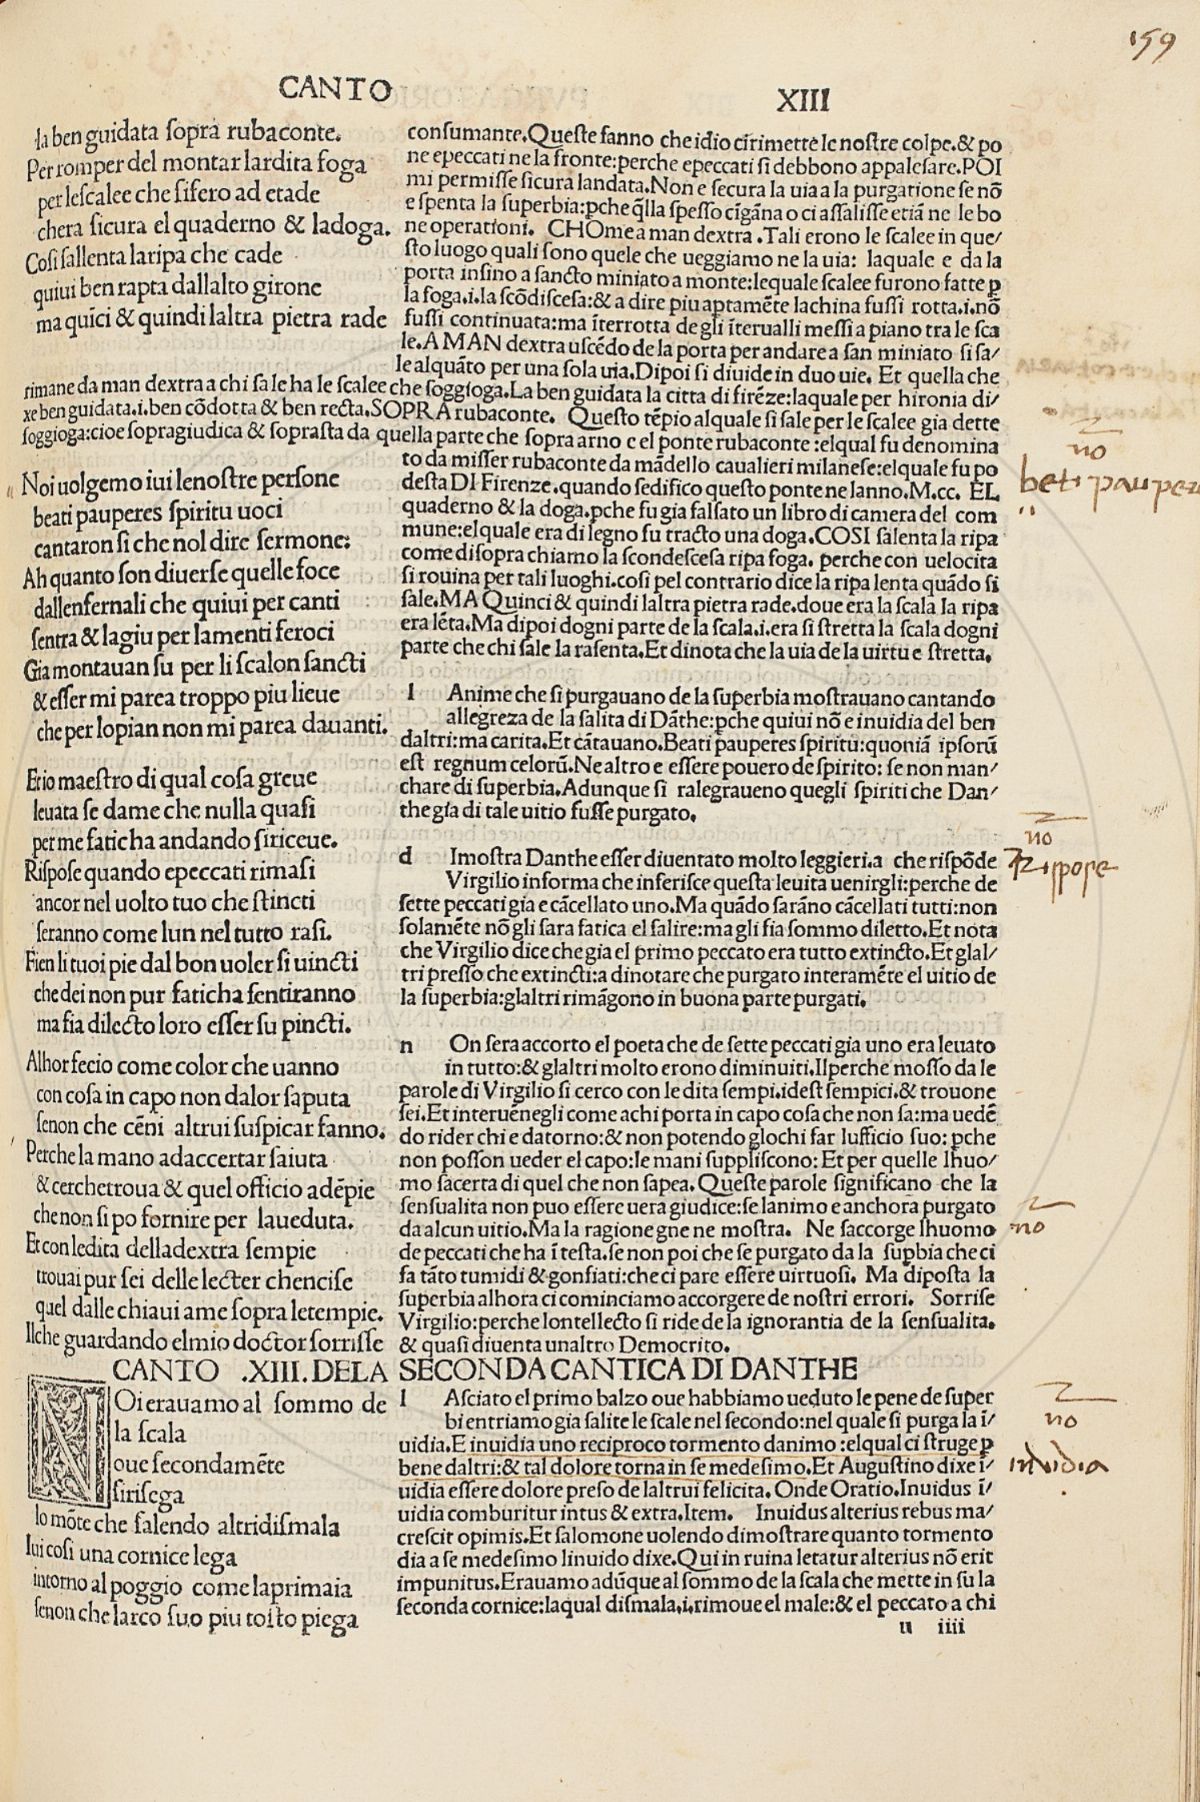 159
CANTO XIII
la ben guidata ſopra rubaconte.
Per romper del montar lardita foga
per leſcalee che ſifero ad etade
chera ſicura el quaderno & ladoga.
Coſi ſallenta laripa che cade
quiui ben rapta dallalto girone
ma quici & quindi laltra pietra rade
Noi uolgemo iui lenoſtre perſone
beati pauperes ſpiritu uoci
cantaron ſi che nol dire ſermone:
Ah quanto ſon diuerſe quelle foce
dallenfernali che quiui per canti
ſentra & lagiu per lamenti feroci
Gia montauan ſu per li ſcalon ſancti
& eſſer mi parea troppo piu lieue
che per lopian non mi parea dauanti.
Et io maeſtro di qual coſa greue
leuata ſe dame che nulla quaſi
per me faticha andando ſiriceue.
Riſpoſe quando epeccati rimaſi
ancor nel uolto tuo che ſtincti
ſeranno come lun nel tutto raſi.
Fien li tuoi pie dal bon uoler ſi uincti
che dei non pur faticha ſentiranno
ma fia dilecto loro eſſer ſu pincti.
Alhor fecio come color che uanno
con coſa in capo non dalor ſaputa
ſenon che cēni altrui ſuſpicar fanno.
Perche la mano adaccertar ſaiuta
& cerchetroua & quel officio adēpie
che non ſi po fornire per laueduta.
Et con ledita delladextra ſempie
trouai pur ſei delle lecter chenciſe
quel dalle chiaui ame ſopra letempie.
Ilche guardando elmio doctor ſorriſſe
conſumante. Queſte fanno che idio ci rimette le noſtre colpe. & po
ne epeccati ne la fronte: perche epeccati ſi debbono appaleſare. POI
mi permiſſe ſicura landata. Non e ſecura la uia a la purgatione ſe nō
e ſpenta la ſuperbia: pche q̄lla ſpeſſo cīgāna o ci aſſaliſſe etiā ne le bo
ne operationi. CHOme a man dextra. Tali erono le ſcalee in que/
ſto luogo quali ſono quele che ueggiamo ne la uia: laquale e da la
porta inſino a ſancto miniato a monte: lequale ſcalee furono fatte p
la foga .i. la ſcōdiſceſa: & a dire piu aptamēte lachina fuſſi rotta .i. nō
fuſſi continuata: ma īterrotta de gli īterualli meſſi a piano tra le ſca
le. A MAN dextra uſcēdo de la porta per andare a ſan miniato ſi ſa/
le alquāto per una ſola uia. Dipoi ſi diuide in duo uie. Et quella che
rimane da man dextra a chi ſale ha le ſcalee che ſoggioga. La ben guidata la citta di firēze: laquale per hironia di/
xe ben guidata .i. ben cōdotta & ben recta. SOPRA rubaconte. Queſto tēpio alquale ſi ſale per le ſcalee gia dette
ſoggioga: cioe ſopragiudica & ſopraſta da quella parte che ſopra arno e el ponte rubaconte: elqual fu denomina
to da miſſer rubaconte da mādello caualieri milaneſe: elquale fu po
deſta DI Firenze. quando ſedifico queſto ponte ne lanno. M. cc. EL
quaderno & la doga. pche fu gia falſato un libro di camera del com
mune: elquale era di legno fu tracto una doga. COSI ſalenta la ripa
come diſopra chiamo la ſcondeſceſa ripa foga. perche con uelocita
ſi rouina per tali luoghi. coſi pel contrario dice la ripa lenta quādo ſi
ſale. MA Quinci & quindi laltra pietra rade. doue era la ſcala la ripa
era lēta. Ma dipoi dogni parte de la ſcala .i. era ſi ſtretta la ſcala dogni
parte che chi ſale la raſenta. Et dinota che la uia de la uirtu e ſtretta.
l Anime che ſi purgauano de la ſuperbia moſtrauano cantando
allegreza de la ſalita di Dāthe: pche quiui nō e inuidia del ben
daltri: ma carita. Et cātauano. Beati pauperes ſpiritu: quoniā ipſorū
eſt regnum celorū. Ne altro e eſſere pouero de ſpirito: ſe non man/
chare di ſuperbia. Adunque ſi ralegraueno quegli ſpiriti che Dan/
the gia di tale uitio fuſſe purgato.
d Imoſtra Danthe eſſer diuentato molto leggieri. a che riſpōde
Virgilio informa che inferiſce queſta leuita uenirgli: perche de
ſette peccati gia e cācellato uno. Ma quādo ſarāno cācellati tutti: non
ſolamēte nō gli ſara fatica el ſalire: ma gli fia ſommo diletto. Et nota
che Virgilio dice che gia el primo peccato era tutto extincto. Et glal/
tri preſſo che extincti: a dinotare che purgato interamēte el uitio de
la ſuperbia: glaltri rimāgono in buona parte purgati.
n On ſera accorto el poeta che de ſette peccati gia uno era leuato
in tutto: & glaltri molto erono diminuiti. Ilperche moſſo da le
parole di Virgilio ſi cerco con le dita ſempi. ideſt ſempici. & trouone
ſei. Et interuēnegli come achi porta in capo coſa che non ſa: ma uedē
do rider chi e datorno: & non potendo glochi far lufficio ſuo: pche
non poſſon ueder el capo: le mani ſuppliſcono: Et per quelle lhuo/
mo ſacerta di quel che non ſapea. Queſte parole ſignificano che la
ſenſualita non puo eſſere uera giudice: ſe lanimo e anchora purgato
da alcun uitio. Ma la ragione gne ne moſtra. Ne ſaccorge lhuomo
de peccati che ha ī teſta. ſe non poi che ſe purgato da la ſupbia che ci
fa tāto tumidi & gonfiati: che ci pare eſſere uirtuoſi. Ma dipoſta la
ſuperbia alhora ci cominciamo accorgere de noſtri errori. Sorriſe
Virgilio: perche lontellecto ſi ride de la ignorantia de la ſenſualita.
& quaſi diuenta unaltro Democrito.
CANTO .XIII. DELA SECONDA CANTICA DI DANTHE
NOi erauamo al ſommo de
la ſcala
oue ſecondamēte
ſiriſega
lo mōte che ſalendo altridiſmala
Iui coſi una cornice lega
intorno al poggio come laprimaia
ſenon che larco ſuo piu toſto piega
l Aſciato el primo balzo oue habbiamo ueduto le pene de ſuper
bi entriamo gia ſalite le ſcale nel ſecondo: nel quale ſi purga la ī/
uidia. E inuidia uno reciproco tormento danimo: elqual ci ſtruge p
bene daltri: & tal dolore torna in ſe medeſimo. Et Auguſtino dixe ī/
uidia eſſere dolore preſo de laltrui felicita. Onde Oratio. Inuidus ī/
uidia comburitur intus & extra. Item. Inuidus alterius rebus ma/
creſcit opimis. Et ſalomone uolendo dimoſtrare quanto tormento
dia a ſe medeſimo linuido dixe. Qui in ruina letatur alterius nō erit
impunitus. Erauamo adūque al ſommo de la ſcala che mette in ſu la
ſeconda cornice: laqual diſmala .i. rimoue el male: & el peccato a chi
u iiii
no
beti pauper
no
Riſpoſe
no
no
invidia